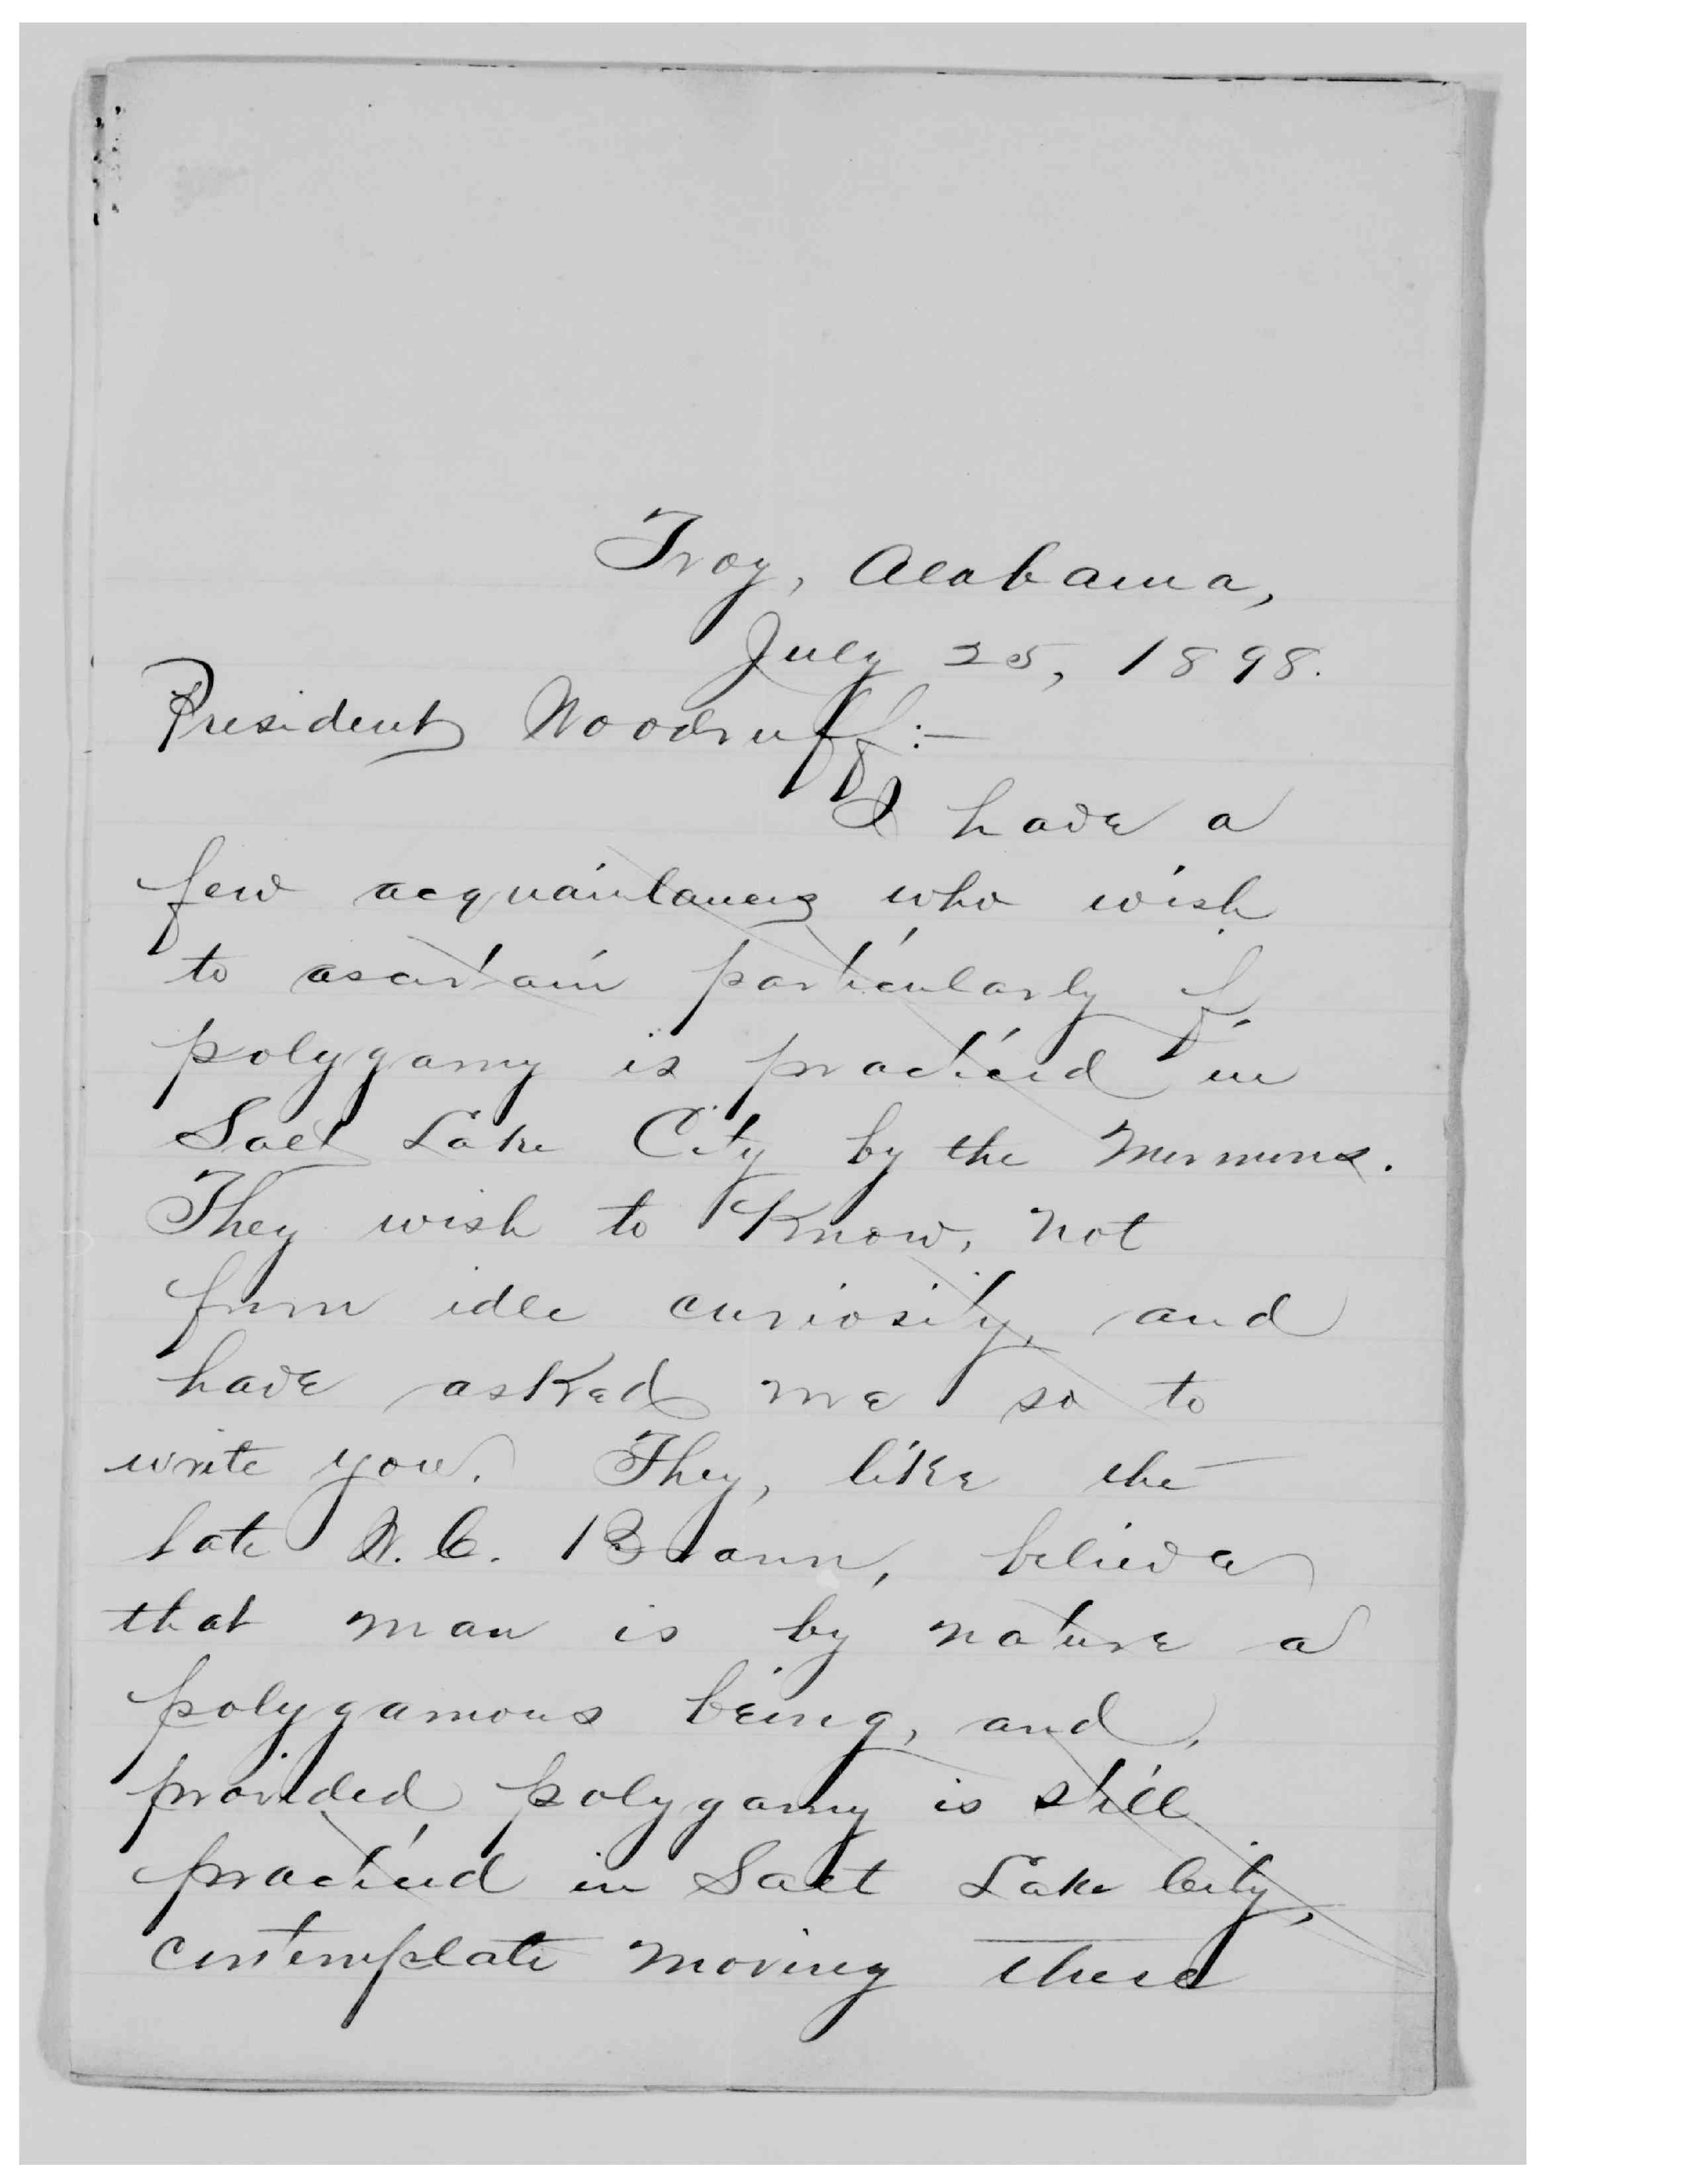 Troy, Alabama,
July 25, 1898.
President Woodruff:—
I have a
few acquaintances who wish
to ascertain particularly if
polygamy is practiced in
Salt Lake City by the Mormons.
They wish to know, not
from idle curiosity, and
have asked me so to
write you. They, like the
late W. C. Brann, believe
that man is by nature a
polygamous being, and,
provided polygamy is still
practiced in Salt Lake City,
contemplate moving there